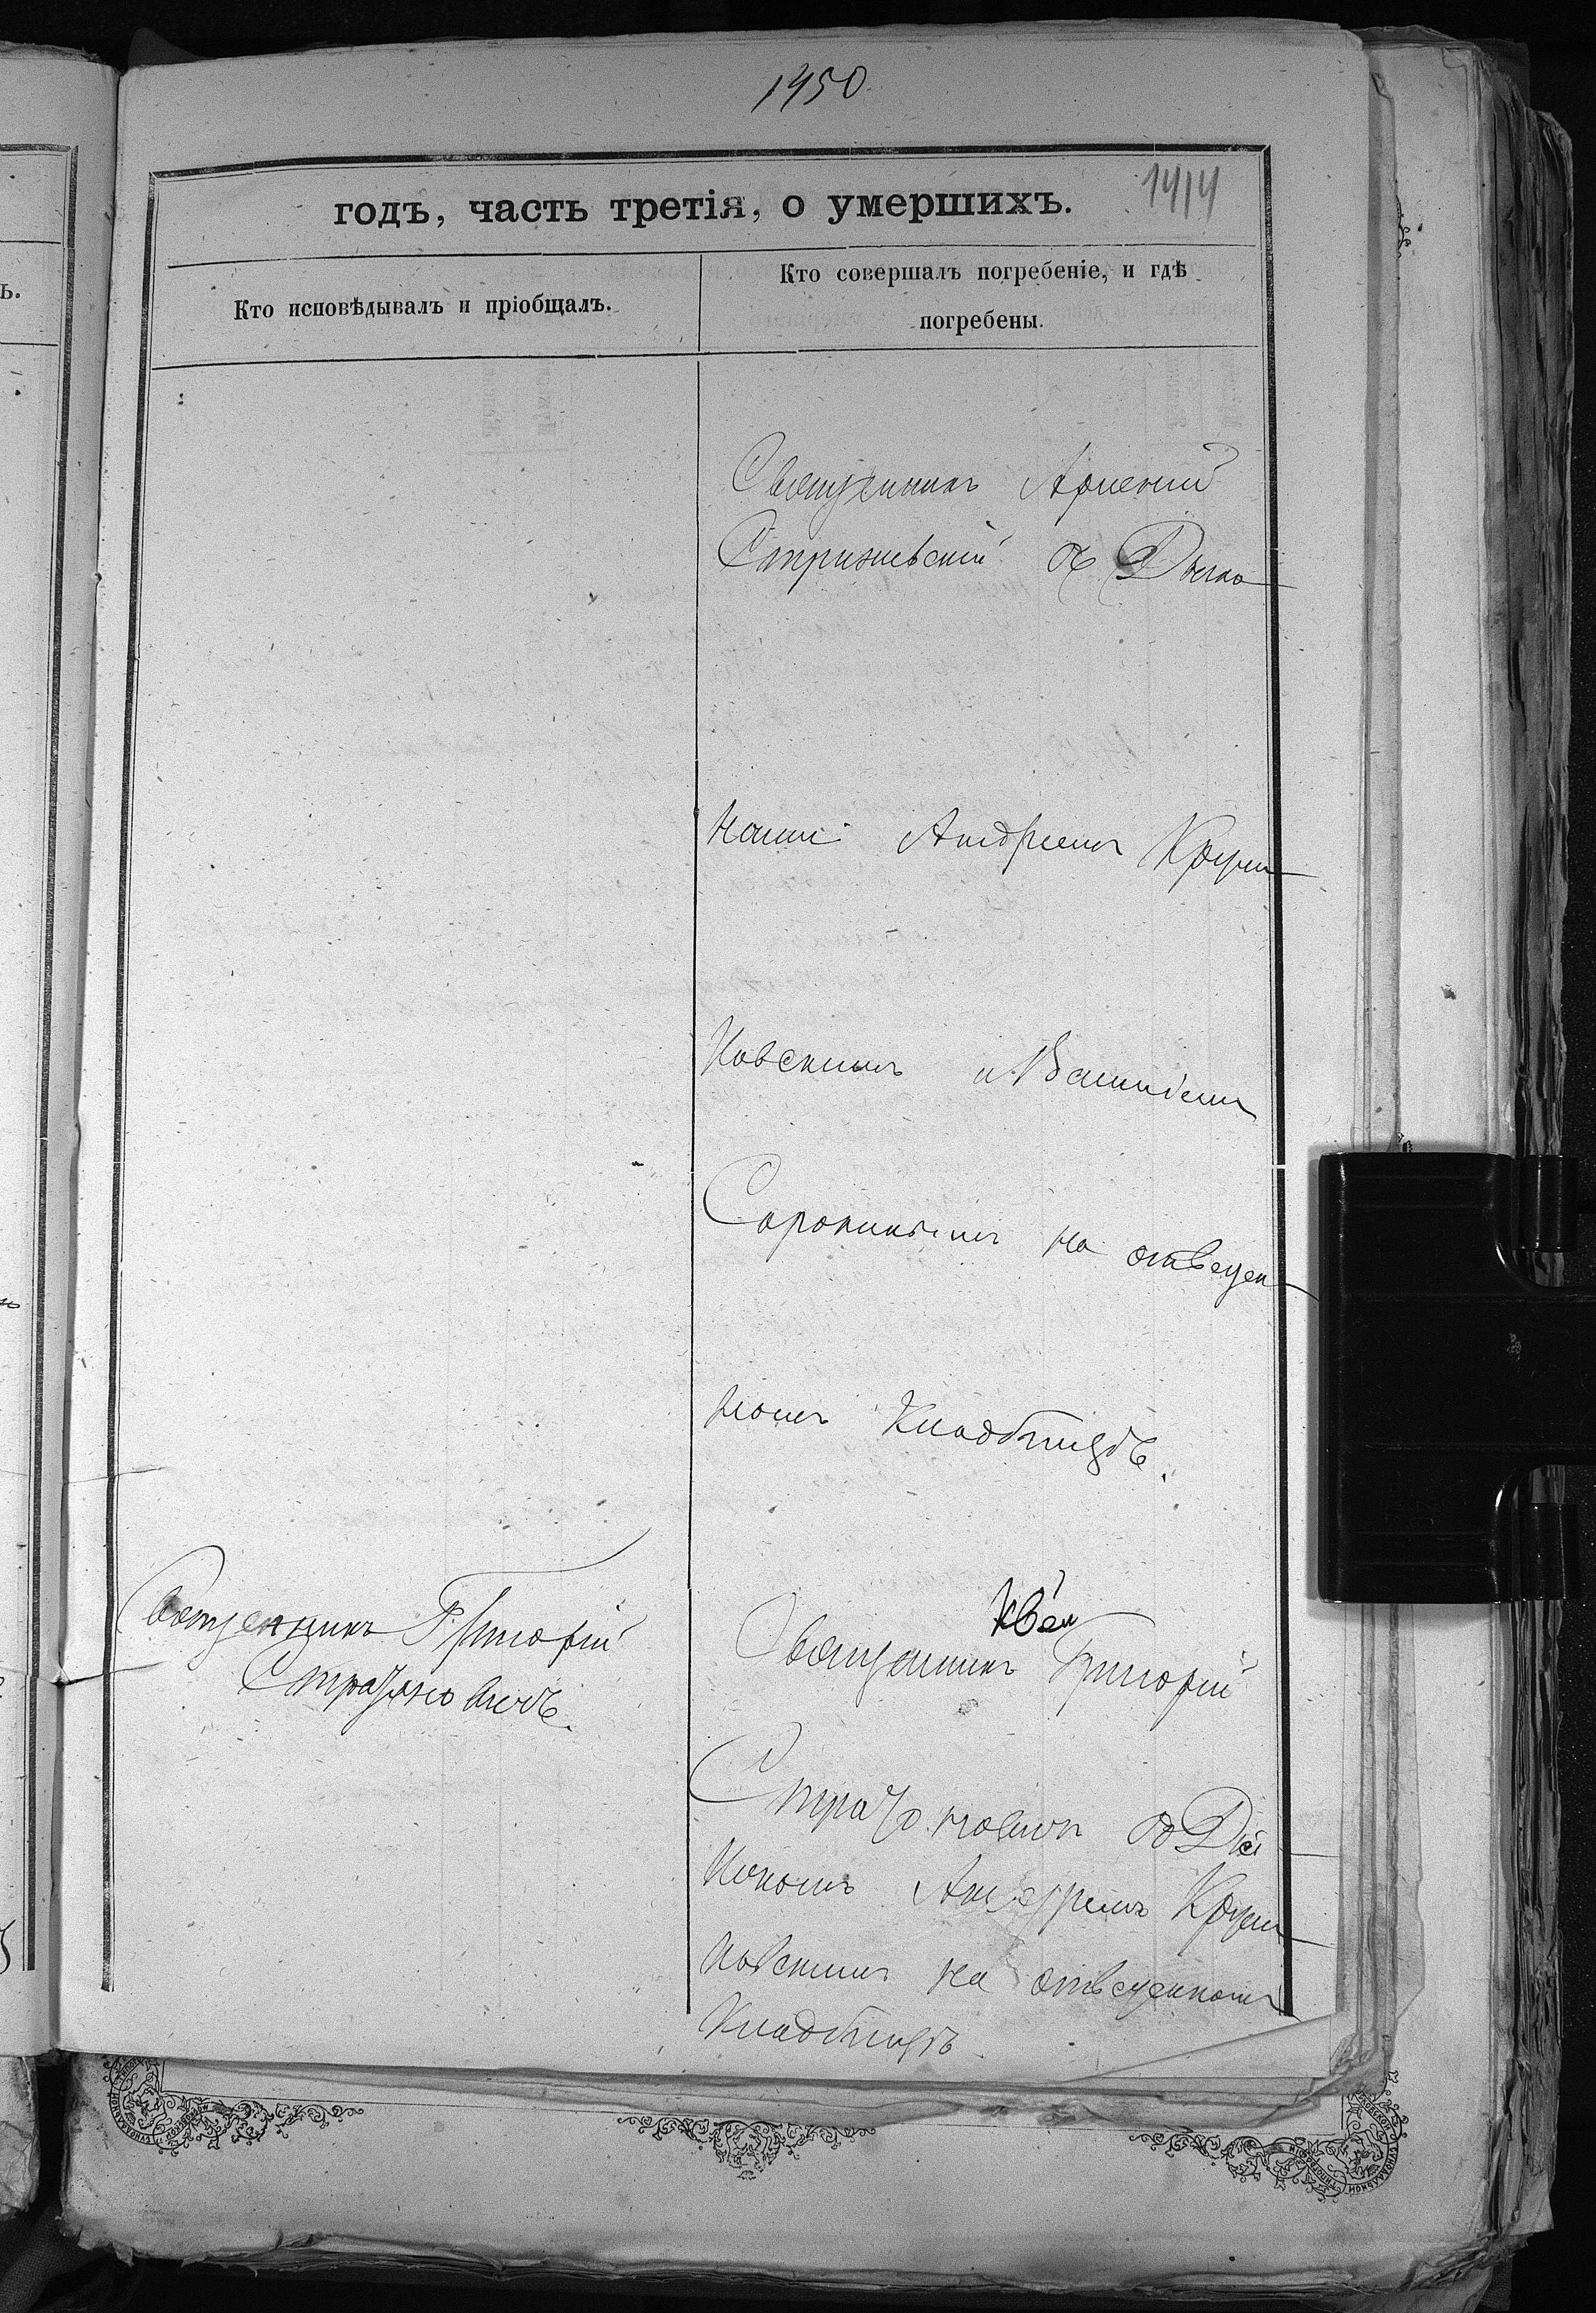 1450
1414
годъ, часть третія, о умершихъ.
Кто исповѣдывалъ и пріобщалъ.
Кто совершалъ погребеніе, и гдѣ
погребены.
Священникъ Арсеній
Стрижевскій съ Діако
нами Андреемъ Круши
новскимъ и
Сорокинымъ на отведен
номъ Кладбищѣ.
Священникъ Григорій
Священникъ Григорій
съ Діа
кономъ Андреемъ Круши
новскимъ на отведенномъ
Кладбищѣ